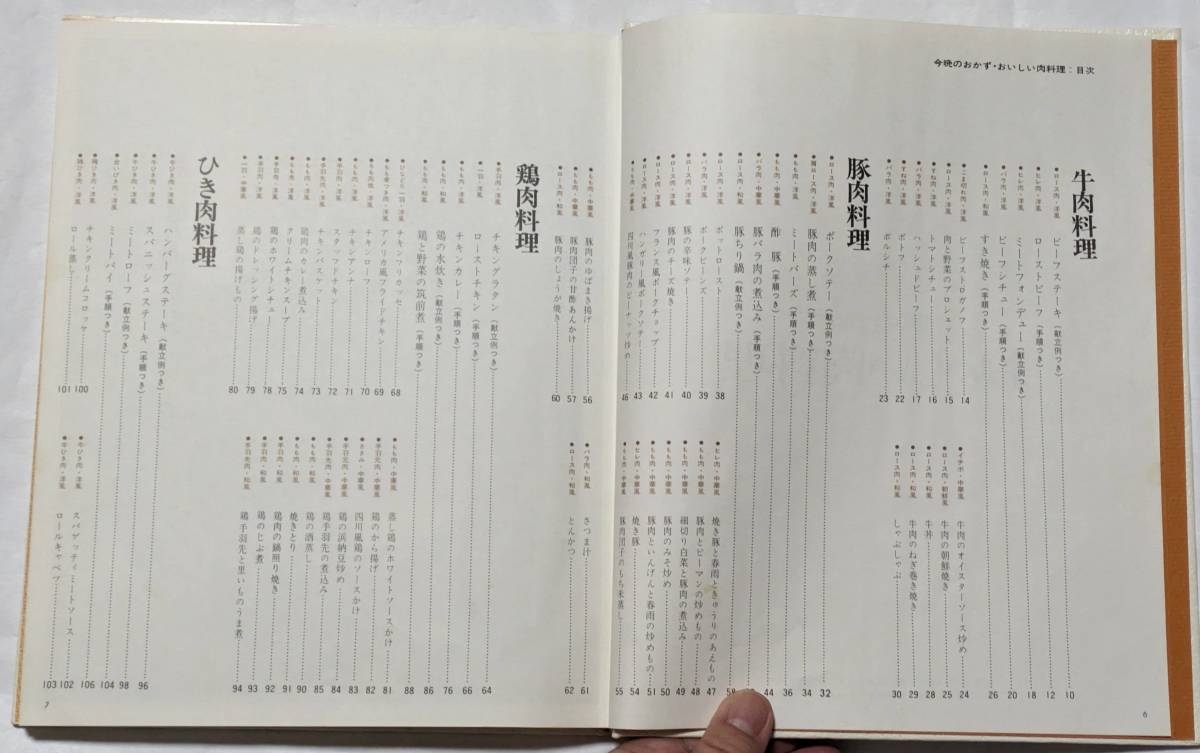 今晩のおかず・おいしい肉料理：目次
牛肉料理
●ロース肉・洋風 ビーフステーキ（献立例つき） 10
ローストビーフ（手順つき） 12
●ヒレ肉・洋風 ミートフォンデュー（献立例つき） 18
●バラ肉・洋風 ビーフシチュー（手順つき） 20
●ロース肉・和風 すき焼き（手順つき） 26
●こま切れ肉・洋風 ビーフストロガノフ 14
肉と野菜のブロシェット 15
●すね肉・洋風 トマトシチュー 16
●バラ肉・洋風 ハッシュドビーフ 17
●すね肉・洋風 ポトフ 22
●バラ肉・洋風 ボルシチ 23
●イチボ・中華風 牛肉のオイスターソース炒め 24
●ロース肉・朝鮮風 牛肉の朝鮮焼き 25
●ロース肉・和風 牛丼 28
●ロース肉・和風 牛肉のねぎ巻き焼き 29
●ロース肉・和風 しゃぶしゃぶ 30
豚肉料理
●ロース肉・洋風 ポークソテー（献立例つき） 32
●肩ロース肉・洋風 豚肉の蒸し煮（手順つき） 34
●もも肉・洋風 ミートバーズ（手順つき） 36
●もも肉・中華風 酢豚（手順つき） 44
●バラ肉・中華風 豚バラ肉の煮込み（手順つき）
●ロース肉・和風 豚ちり鍋（献立例つき） 58
●ロース肉・洋風 ポットロースト 38
●バラ肉・洋風 ポークビーンズ 39
●ロース肉・洋風 豚の辛味ソテー 40
●ロース肉・洋風 豚肉のチーズ焼き 41
●ロース肉・洋風 フランス風ポークチョップ 42
●ロース肉・洋風 ハンガリー風ポークソテー 43
●もも肉・中華風 四川風豚肉のピーナッツ炒め 46
焼き豚と春雨ときゅうりのあえもの 47
●もも肉・中華風 豚肉とピーマンの炒めもの 48
●もも肉・中華風 細切り白菜と豚肉の煮込み 49
●もも肉・中華風 豚肉のみそ炒め 50
●もも肉・中華風 豚肉といんげんと春雨の炒めもの 51
●ヒレ肉・中華風 焼き豚 54
●もも肉・中華風 豚肉団子のもち米蒸し 55
●もも肉・中華風 豚肉のゆばまき揚げ 56
●もも肉・中華風 豚肉団子の甘酢あんかけ 57
●ロース肉・和風 豚肉のしょうが焼き 60
●バラ肉・和風 さつま汁 61
●ロース肉・和風 とんかつ 62
6
鶏肉料理
●手羽肉・洋風 チキングラタン（献立例つき） 64
●一羽・洋風 ローストチキン（手順つき） 66
●もも肉・洋風 チキンカレー（手順つき） 66
●もも肉・和風 鶏の水炊き（献立例つき） 76
●もも肉・和風 鶏と野菜の筑前煮（手順つき） 86
88
●ひなどり一羽・洋風 チキンフリカッセ 68
●もも骨つき肉・洋風 アメリカ風フライドチキン 69
●もも肉他・洋風 チキンカツレツ 70
●もも肉・洋風 チキンソテーアンナ 71
●手羽肉・洋風 スタッフドチキン 72
●手羽元肉・洋風 チキンバスケット 73
●もも肉・洋風 鶏肉のカレー煮込み 74
●もも肉・洋風 クリームチキンスープ 75
●手羽先肉・洋風 鶏のホワイトシチュー 78
●手羽肉・洋風 鶏のドレッシング揚げ 79
●一羽・中華風 蒸し鶏の揚げもの 80
●もも肉・中華風 蒸し鶏のホワイトソースかけ 81
●手羽元肉・中華風 鶏のから揚げ 82
●ささみ・中華風 四川風鶏のソースかけ 83
●手羽元肉・中華風 鶏の浜納豆炒め 84
●手羽先肉・中華風 鶏手羽先の煮込み 85
●もも肉・和風 鶏の酒蒸し
●もも肉・和風 焼きとり 90
●手羽肉・和風 鶏肉の鍋照り焼き 91
●手羽肉・和風 鶏のじぶ煮 92
●手羽先肉・和風 鶏手羽先と里いものうま煮 93
94
ひき肉料理
●牛ひき肉・洋風 ハンバーグステーキ（献立例つき） 96
●牛ひき肉・洋風 スパニッシュステーキ（手順つき） 98
●牛ひき肉・洋風 ミートローフ（手順つき） 104
●合いびき肉・洋風 ミートパイ（手順つき） 106
●鶏ひき肉・洋風 チキンクリームコロッケ 100
●鶏ひき肉・洋風 ロール蒸し 101
●牛ひき肉・洋風 スパゲッティミートソース 102
●牛ひき肉・洋風 ロールキャベツ 103
7